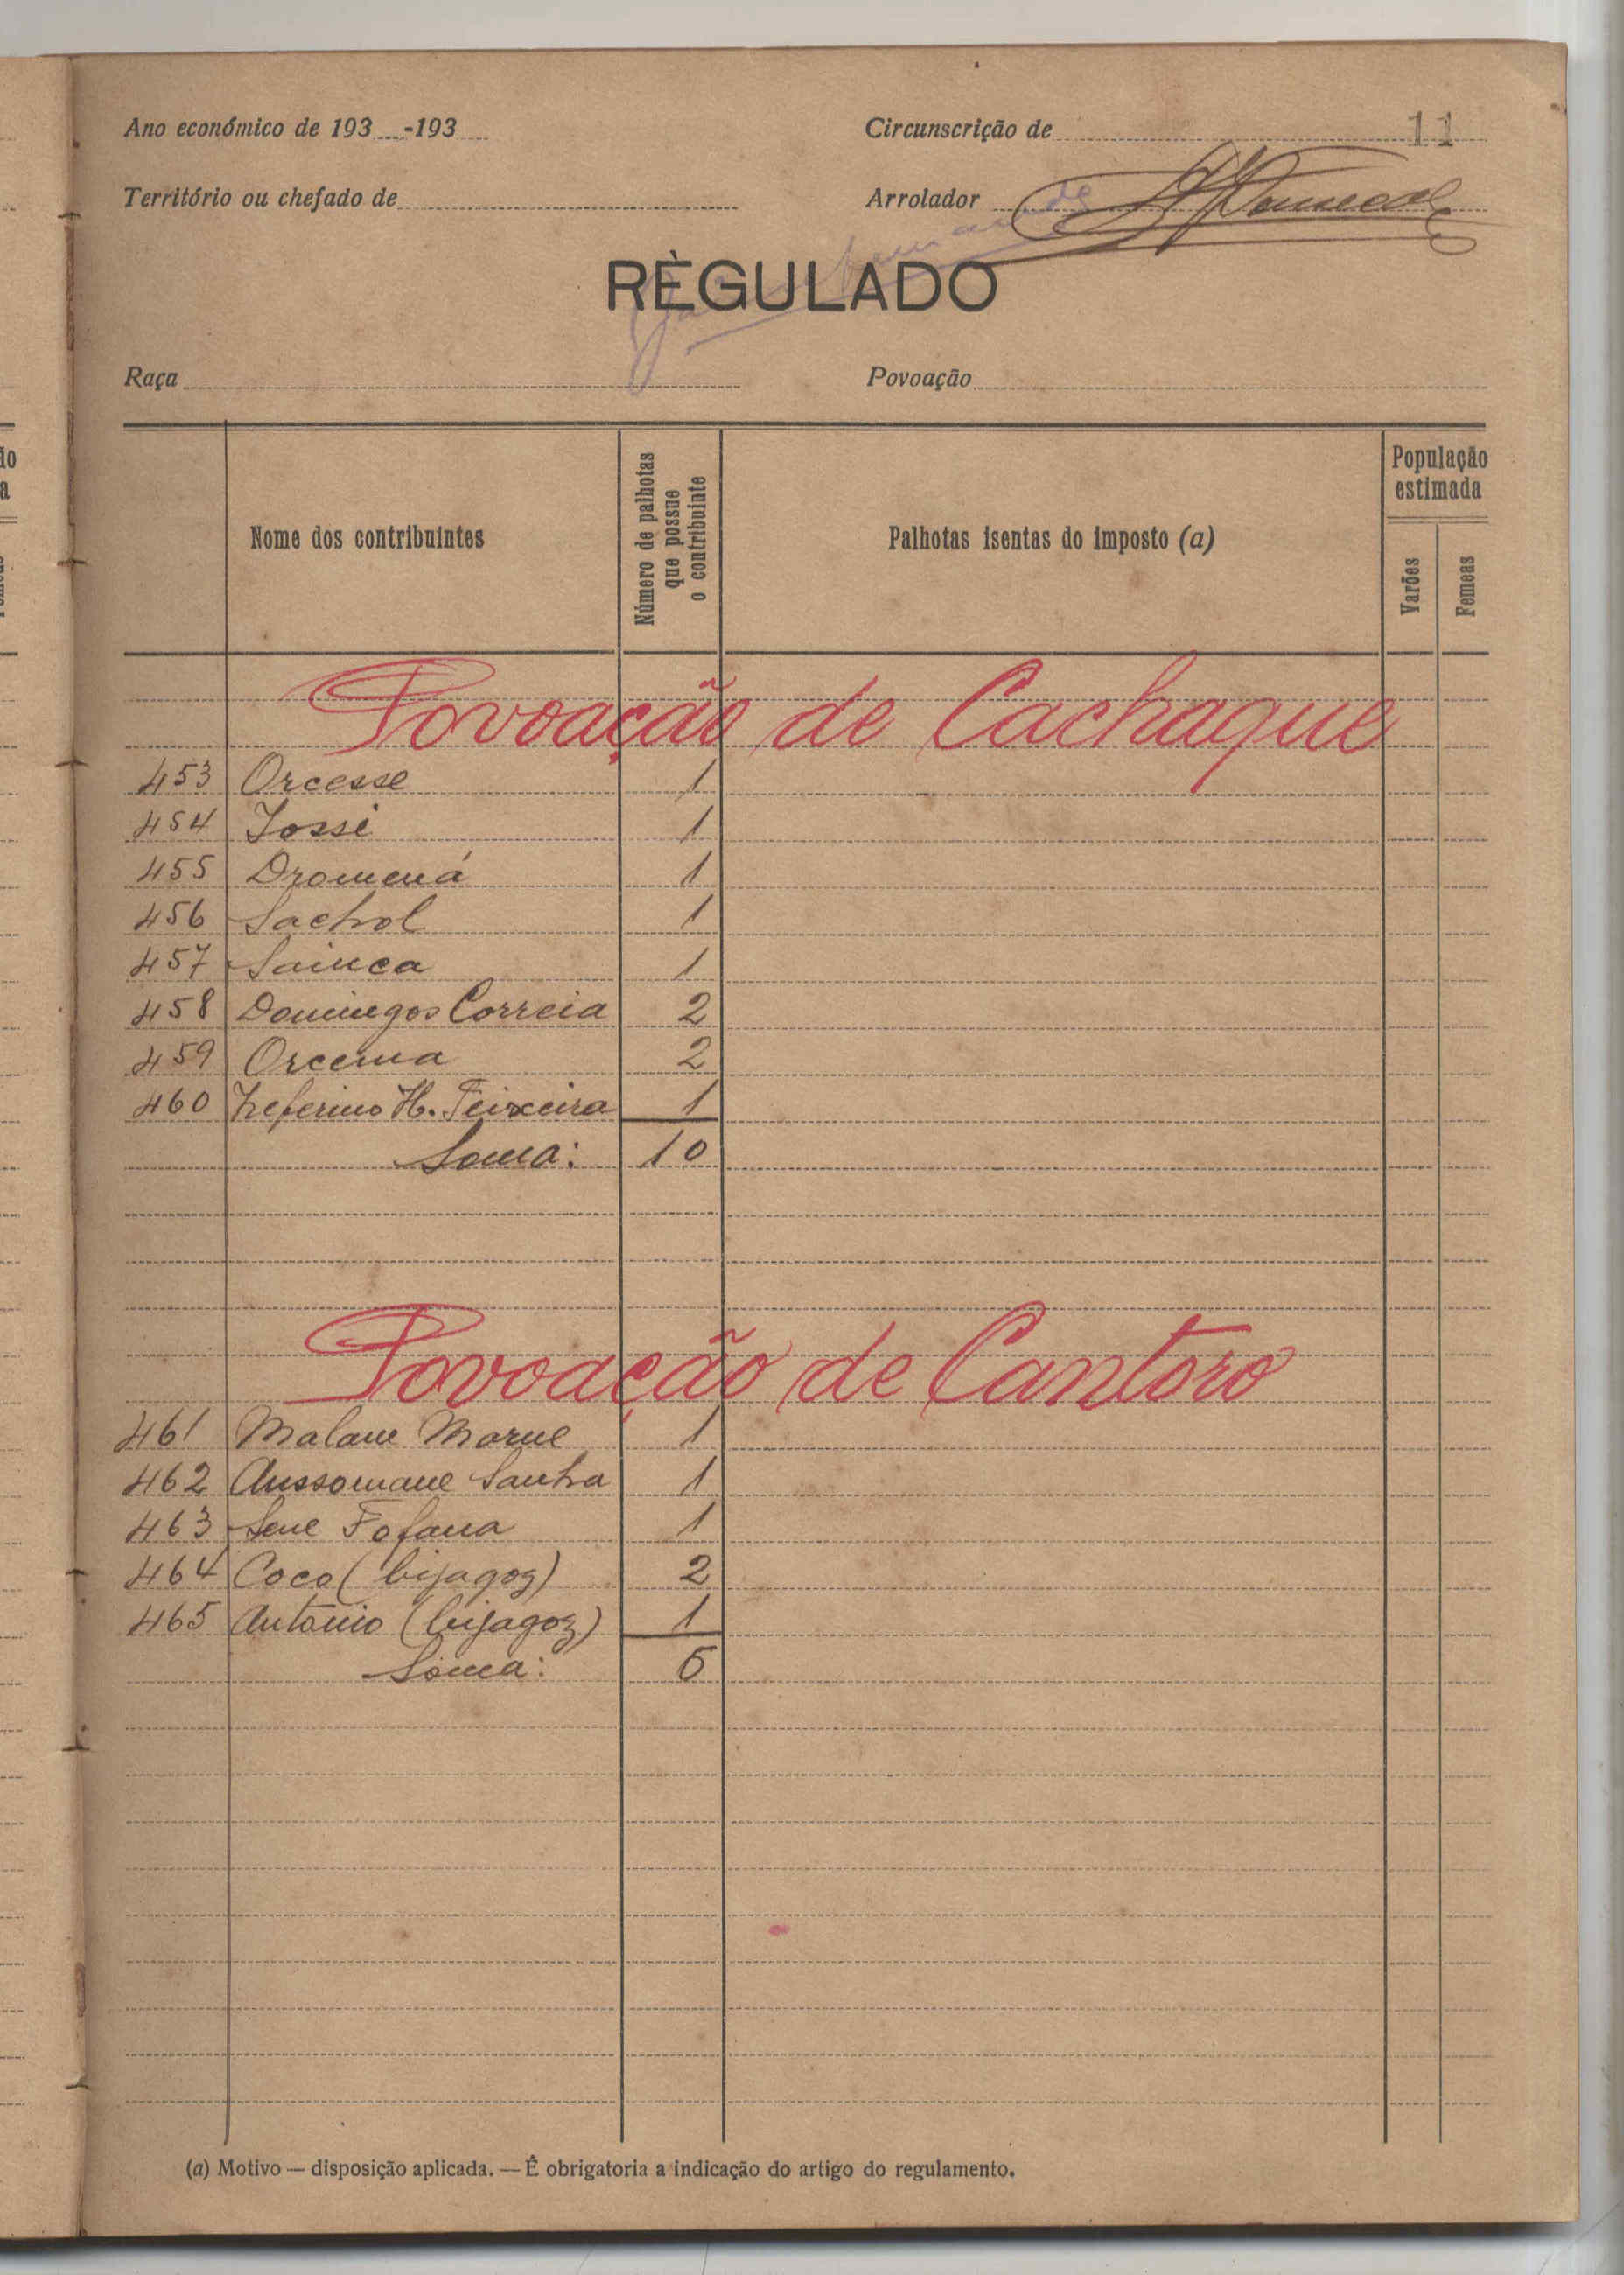 Ano económico de 193 -193
Circunscrição de 11
Território ou chefado de
Arrolador
RÈGULADO
Raça
Povoação
Nome dos contribuintes
Número de palhotas que possue o contribuinte
Palhotas isentas do imposto (a)
População estimada
Varões
Femeas
Povoação de Cachaque
453 Orcesse 1
454 Jossi 1
455 Dromená 1
456 Sachol 1
457 Sainca 1
458 Domingos Correia 2
459 Orcema 2
460 Zeferino H. Teixeira 1
Soma: 10
Povoação de Cantoro
461 Malam Marne 1
462 Aussomane Sanha 1
463 Sene Fofana 1
464 Coco (bijagoz) 2
465 Antonio (bijagoz) 1
Soma: 6
(a) Motivo — disposição aplicada. — É obrigatoria a indicação do artigo do regulamento.